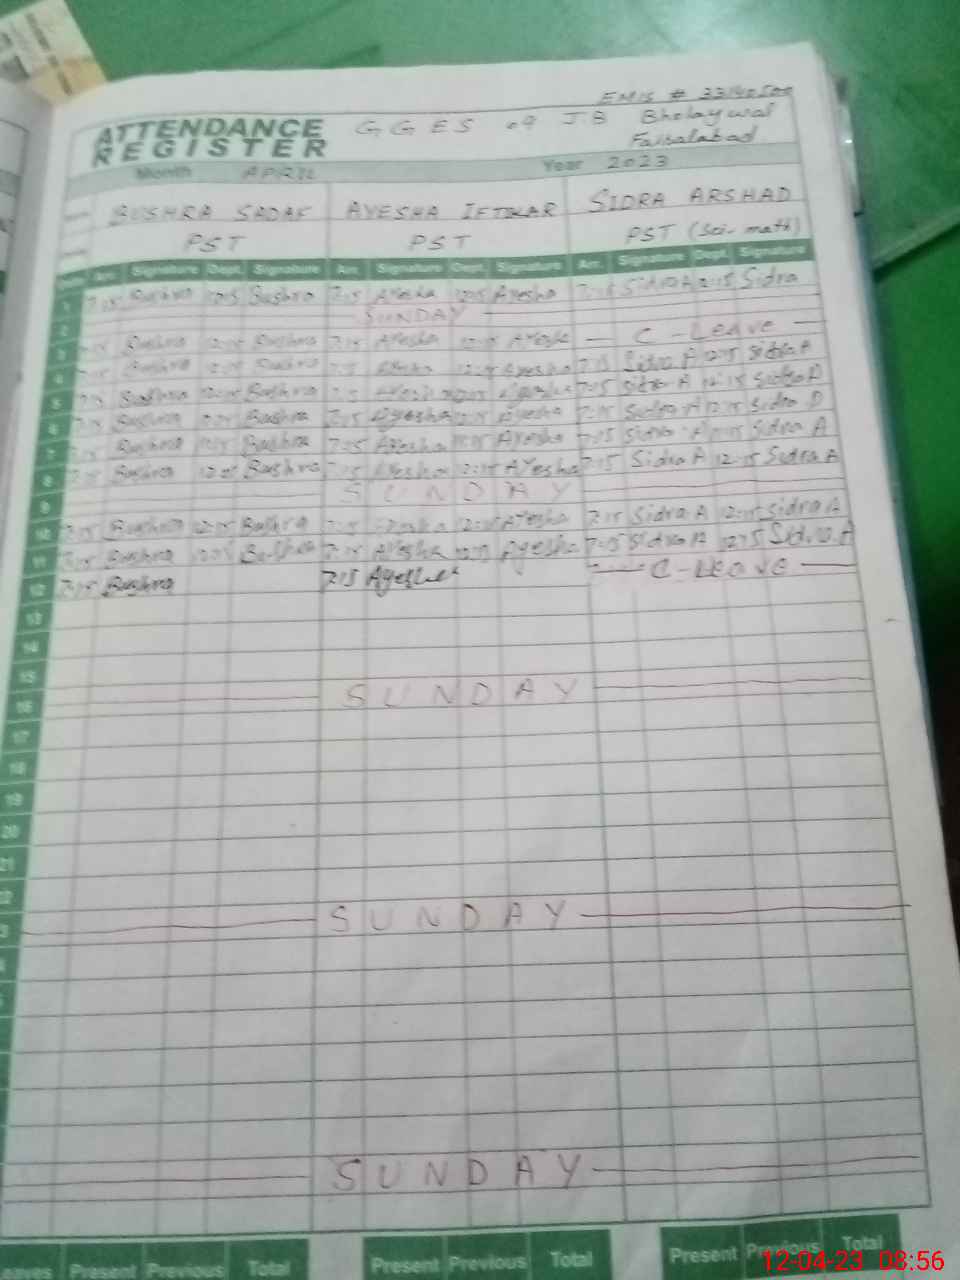 EMIS #
ATTENDANCE REGISTER GGES 09 JB Bholaywal
Faisalabad
Month APRIL Year 2023
BUSHRA SADAF AYESHA IFTIKHAR SIDRA ARSHAD
PST PST PST (Sci-math)
Arr. Signature Dept. Signature Arr. Signature Dept. Signature Arr. Signature Dept. Signature
1 7:15 Bushra 12:15 Bushra 7:15 Ayesha 12:15 Ayesha 7:15 Sidra A 12:15 Sidra
2 SUNDAY
3 7:15 Bushra 12:15 Bushra 7:15 Ayesha 12:15 Ayesha C-Leave
4 Bushra Bushra 7:15 Ayesha 12:15 Ayesha 7:15 Sidra A 12:15 Sidra A
5 7:15 Bushra 12:15 Bushra 7:15 Ayesha 12:15 Ayesha 7:15 Sidra A 12:15 Sidra A
6 7:15 Bushra 12:15 Bushra 7:15 Ayesha 12:15 Ayesha 7:15 Sidra A 12:15 Sidra A
7 7:15 Bushra 12:15 Bushra 7:15 Ayesha 12:15 Ayesha 7:15 Sidra A 12:15 Sidra A
8 7:15 Bushra 12:15 Bushra 7:15 Ayesha 12:15 Ayesha 7:15 Sidra A 12:15 Sidra A
9 SUNDAY
10 7:15 Bushra 12:15 Bushra 7:15 Ayesha 12:15 Ayesha 7:15 Sidra A 12:15 Sidra A
11 7:15 Bushra 12:15 Bushra 7:15 Ayesha 12:15 Ayesha 7:15 Sidra A 12:15 Sidra A
12 7:15 Bushra 7:15 Ayesha C-Leave
13
14
15
16 SUNDAY
17
18
19
20
21
2
3 SUNDAY
SUNDAY
eaves Present Previous Total Present Previous Total Present Previous Total
12-04-23 08:56